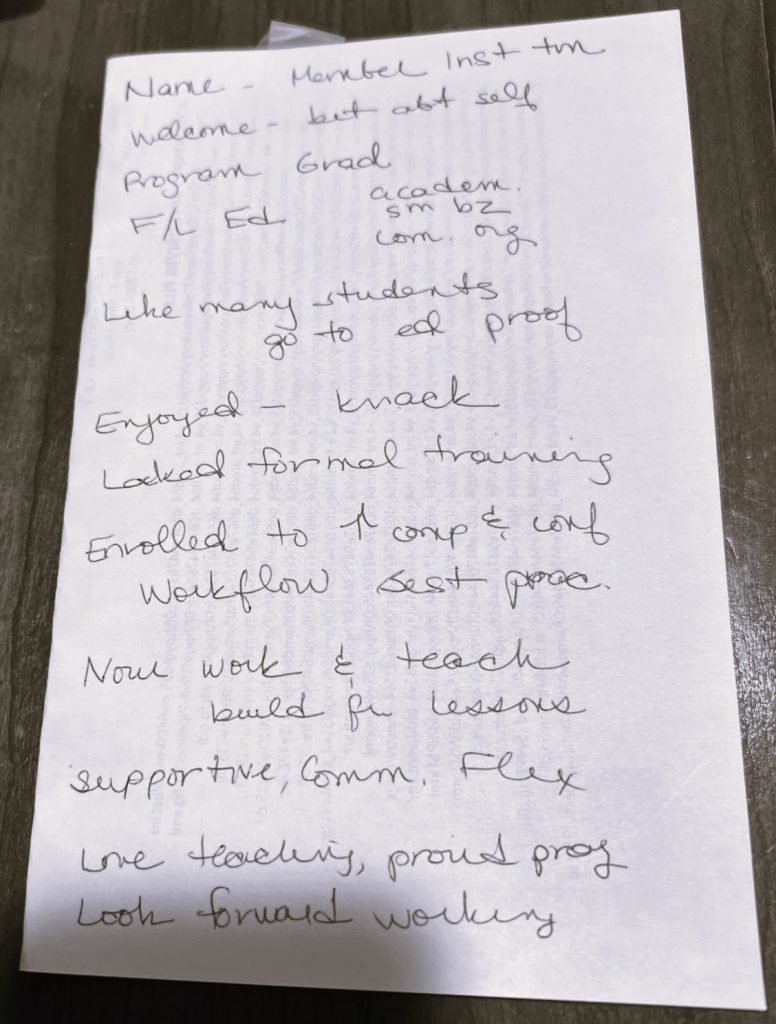 Name - Member Inst tm
Welcome - bit abt self
Program Grad
F/L Ed
academ.
sm bz
com. org
Like many students
go to ed proof
Enjoyed - knack
Lacked formal training
Enrolled to ↑ comp & conf
Workflow best prac.
Now work & teach
build fr lessons
Supportive, Comm, Flex
Love teaching, proud prog
Look forward working